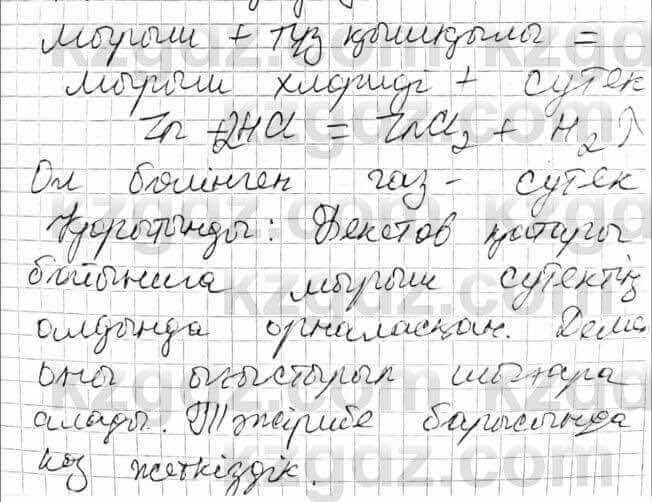 мырыш + тұз қышқылы =
мырыш хлориді + сутек
Zn + 2HCl = ZnCl₂ + H₂↑
Ол бөлінген газ - сутек
Қорытынды: Бекетов қатары
бойынша мырыш сутектің
алдында орналасқан. Демек
оны ығыстырып шығара
алады. Тәжірибе барысында
көз жеткіздік.